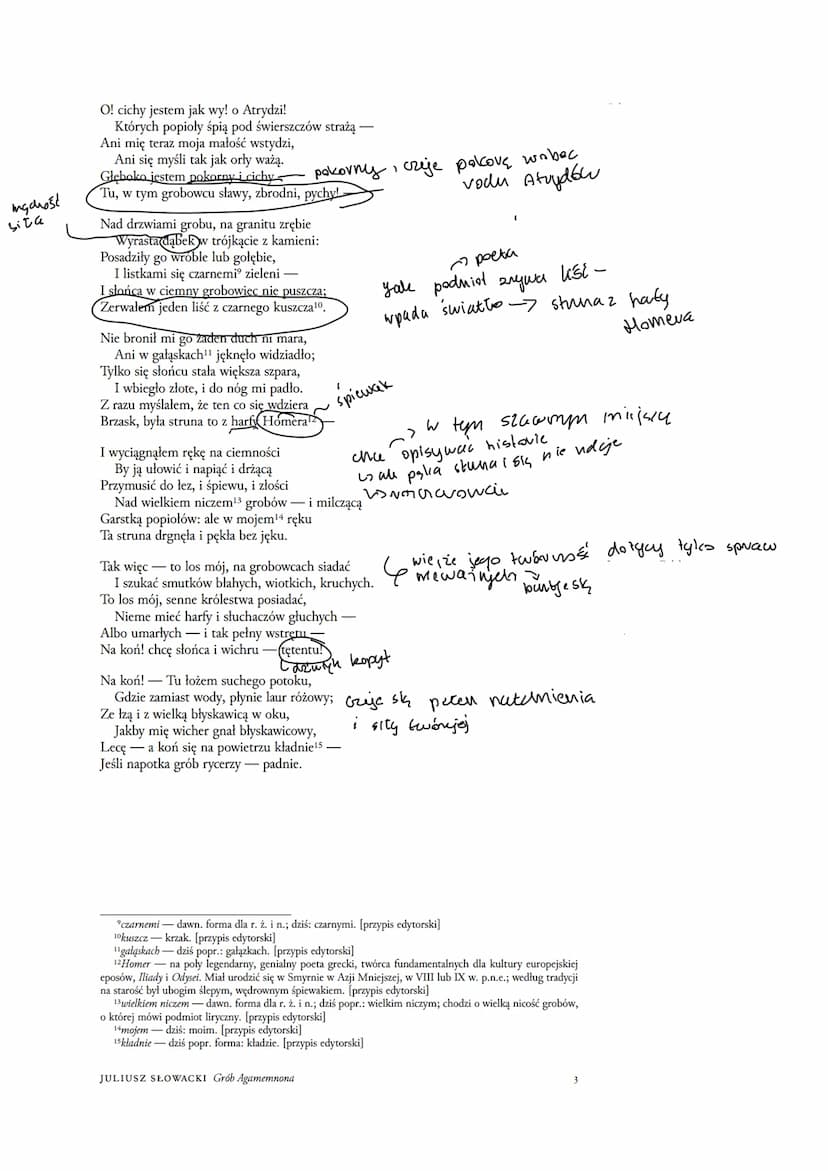 O! cichy jestem jak wy! o Atrydzi!
Których popioły śpią pod świerszczów strażą —
Ani mię teraz moja małość wstydzi,
Ani się myśli tak jak orły ważą.
Głęboko jestem pokorny i cichy
pokorny, czuje pokorę wobec
rodu Atrydów
Tu, w tym grobowcu sławy, zbrodni, pychy!
mądrość
siła
Nad drzwiami grobu, na granitu zrębie
Wyrasta dąbek w trójkącie z kamieni:
Posadziły go wróble lub gołębie,
I listkami się czarnemi⁹ zieleni —
I słońca w ciemny grobowiec nie puszcza;
Zerwałem jeden liść z czarnego kuszcza¹⁰.
→ poeta
gdy podmiot zrywa liść –
wpada światło → struna z harfy
Homera
Nie bronił mi go żaden duch ni mara,
Ani w gałąskach¹¹ jęknęło widziadło;
Tylko się słońcu stała większa szpara,
I wbiegło złote, i do nóg mi padło.
Z razu myślałem, że ten co się wdziera
śpiewak
Brzask, była struna to z harfy Homera¹² —
I wyciągnąłem rękę na ciemności
By ją ułowić i napiąć i drżącą
Przymusić do łez, i śpiewu, i złości
Nad wielkiem niczem¹³ grobów — i milczącą
Garstką popiołów: ale w mojem¹⁴ ręku
Ta struna drgnęła i pękła bez jęku.
→ w tym sławnym miejscu
chce opisywać historie
↳ ale pęka struna i się nie udaje
Tak więc — to los mój, na grobowcach siadać
I szukać smutków błahych, wiotkich, kruchych.
To los mój, senne królestwa posiadać,
Nieme mieć harfy i słuchaczów głuchych —
Albo umarłych — i tak pełny wstrętu —
Na koń! chcę słońca i wichru — tętentu!
wie, że jego twórczość dotyczy tylko spraw
nieważnych →
buntuje się
dźwięk kopyt
Na koń! — Tu łożem suchego potoku,
Gdzie zamiast wody, płynie laur różowy;
Ze łzą i z wielką błyskawicą w oku,
Jakby mię wicher gnał błyskawicowy,
Lecę — a koń się na powietrzu kładnie¹⁵ —
Jeśli napotka grób rycerzy — padnie.
czuje się pełen natchnienia
i siły twórczej
⁹czarnemi — dawn. forma dla r. ż. i n.; dziś: czarnymi. [przypis edytorski]
¹⁰kuszcz — krzak. [przypis edytorski]
¹¹gałąskach — dziś popr.: gałązkach. [przypis edytorski]
¹²Homer — na poły legendarny, genialny poeta grecki, twórca fundamentalnych dla kultury europejskiej
eposów, Iliady i Odysei. Miał urodzić się w Smyrnie w Azji Mniejszej, w VIII lub IX w. p.n.e.; według tradycji
na starość był ubogim ślepym, wędrownym śpiewakiem. [przypis edytorski]
¹³wielkiem niczem — dawn. forma dla r. ż. i n.; dziś popr.: wielkim niczym; chodzi o wielką nicość grobów,
o której mówi podmiot liryczny. [przypis edytorski]
¹⁴mojem — dziś: moim. [przypis edytorski]
¹⁵kładnie — dziś popr. forma: kładzie. [przypis edytorski]
JULIUSZ SŁOWACKI Grób Agamemnona 3